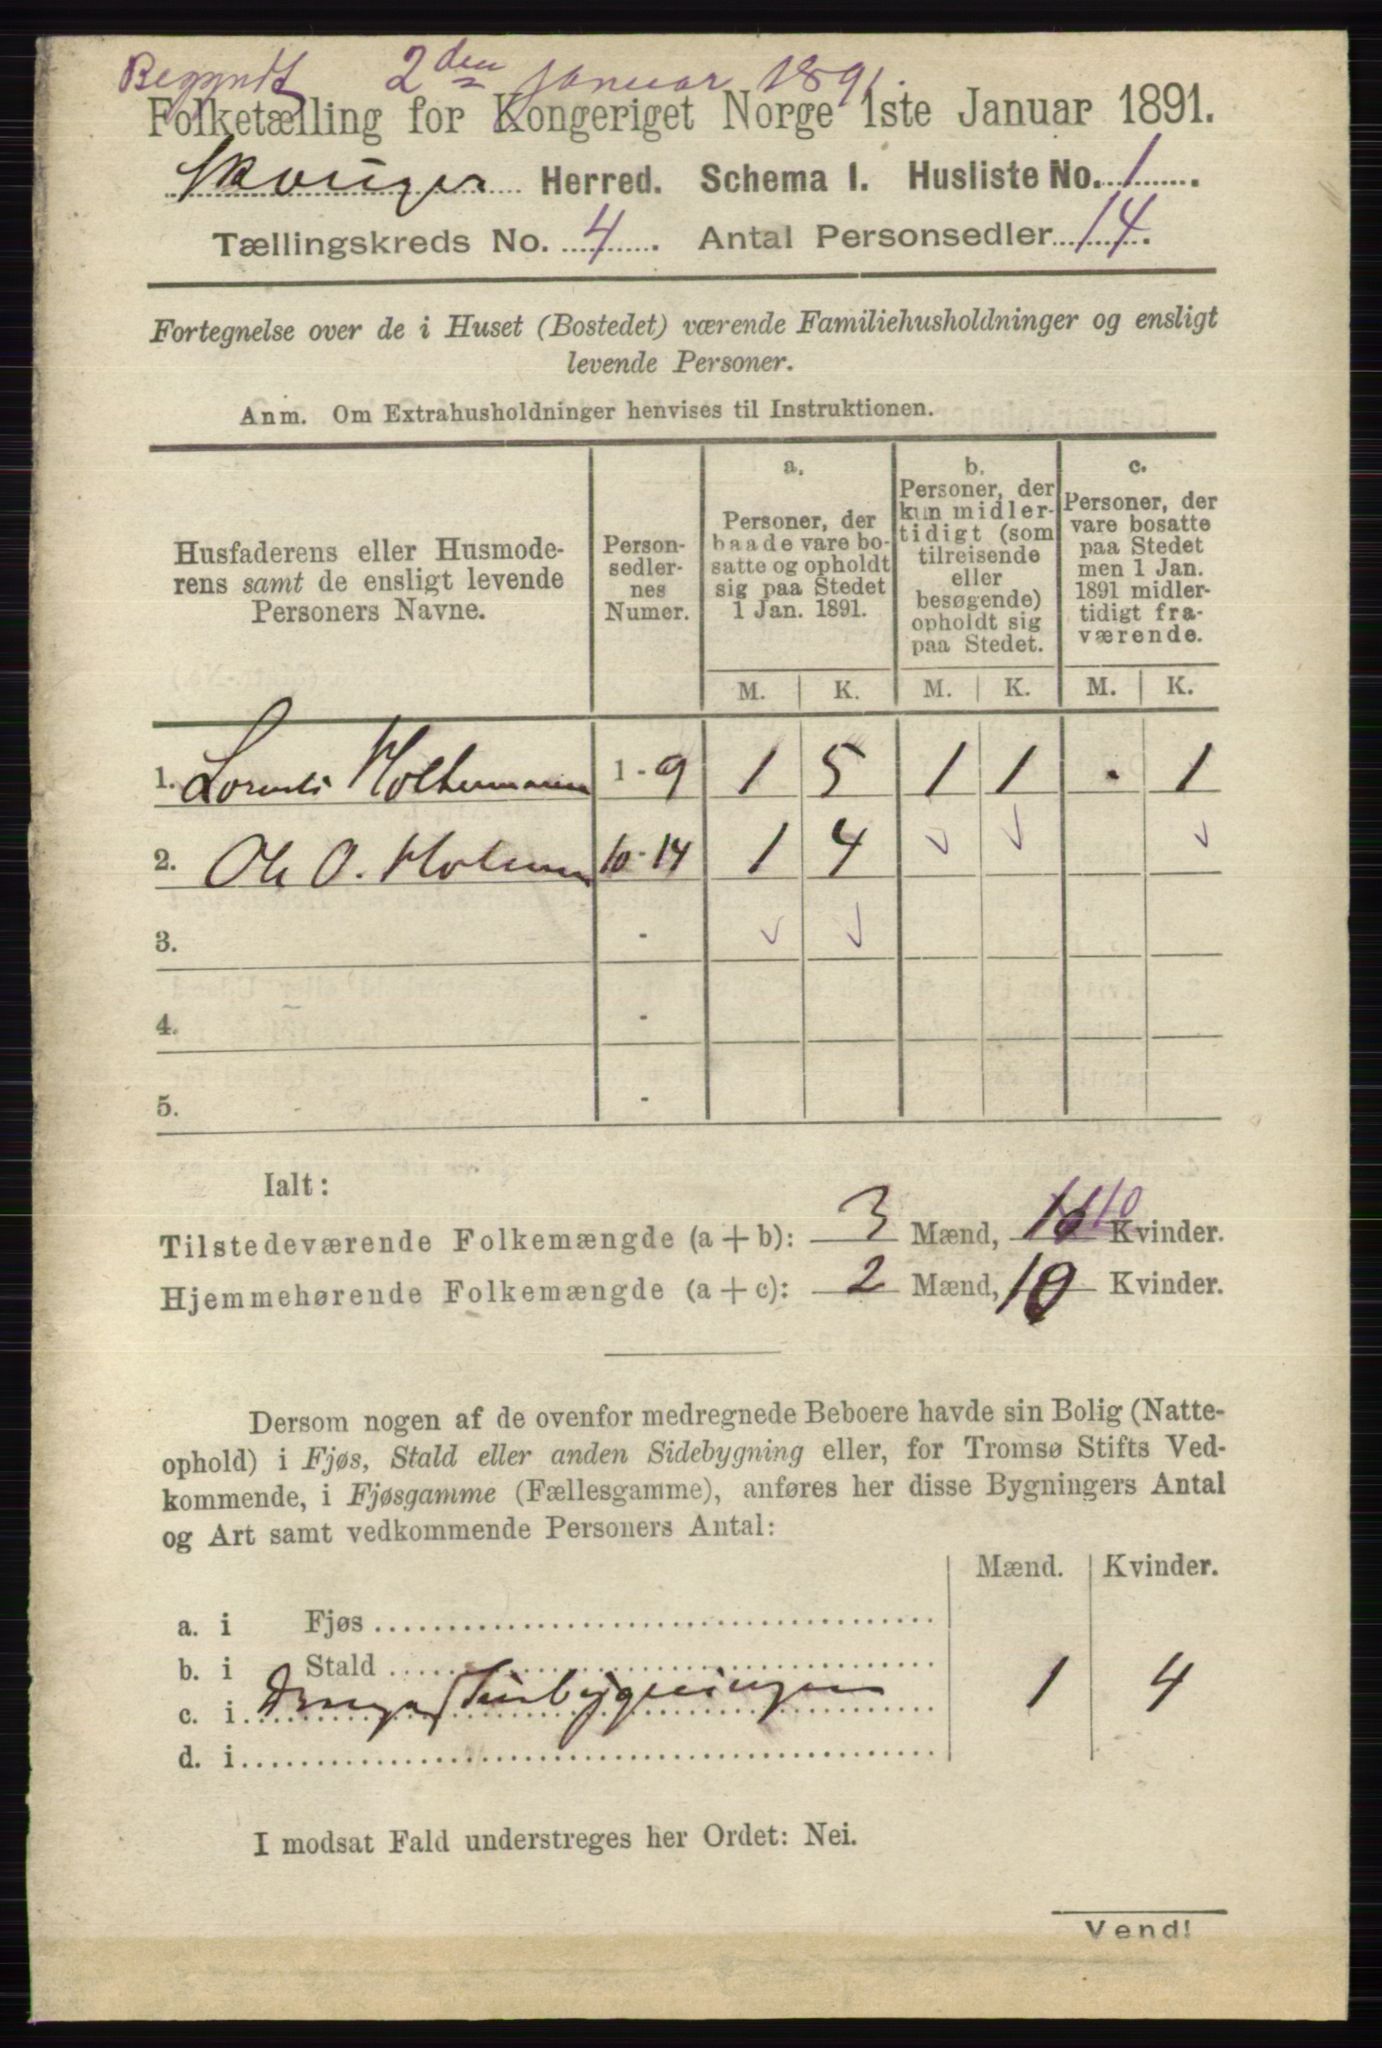 Begyndt 2den Januar 1891.
Folketælling for Kongeriget Norge 1ste Januar 1891.
Skouger Herred. Schema 1. Husliste No. 1.
Tællingskreds No. 4. Antal Personsedler 14.
Fortegnelse over de i Huset (Bostedet) værende Familiehusholdninger og ensligt
levende Personer.
Anm. Om Extrahusholdninger henvises til Instruktionen.
Husfaderens eller Husmode-
rens samt de ensligt levende
Personers Navne.
Person-
sedler-
nes
Numer.
a.
Personer, der
baade vare bo-
satte og opholdt
sig paa Stedet
1 Jan. 1891.
b.
Personer, der
kun midler-
tidigt (som
tilreisende
eller
besøgende)
opholdt sig
paa Stedet.
c.
Personer, der
vare bosatte
paa Stedet
men 1 Jan.
1891 midler-
tidigt fra-
værende.
M. K. M. K. M. K.
1. Lorents Holtermann 1-9 1 5 1 1 . 1
2. Ole O. Holmen 10-14 1 4
3. -
4. -
5. -
Ialt:
Tilstedeværende Folkemængde (a + b): 3 Mænd, 10 Kvinder.
Hjemmehørende Folkemængde (a + c): 2 Mænd, 10 Kvinder.
Dersom nogen af de ovenfor medregnede Beboere havde sin Bolig (Natte-
ophold) i Fjøs, Stald eller anden Sidebygning eller, for Tromsø Stifts Ved-
kommende, i Fjøsgamme (Fællesgamme), anføres her disse Bygningers Antal
og Art samt vedkommende Personers Antal:
Mænd. Kvinder.
a. i Fjøs
b. i Stald
c. i 1 4
d. i
I modsat Fald understreges her Ordet: Nei.
Vend!